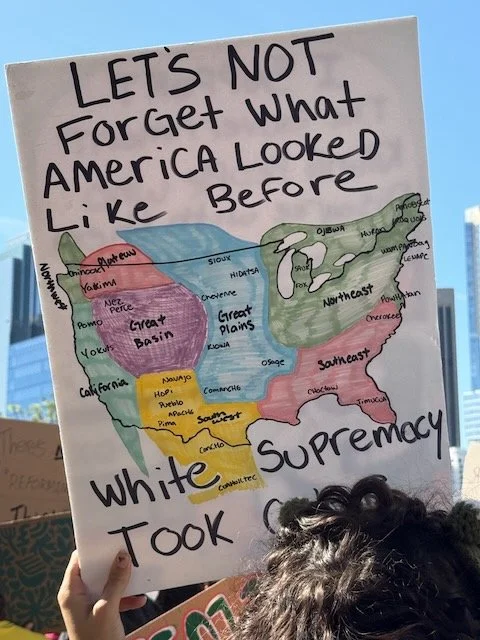 LET'S NOT
ForGet What
AMEriCA LooKeD
LiKe Before
Northwest
Chinook
Plateau
Yakima
Nez
Perce
Pomo
Yokuts
California
Great
Basin
Sioux
HiDATSA
Cheyenne
Great
Plains
Kiowa
Osage
Comanche
OJIBWA
Huron
Penobscot
IROQUOIS
WAMPANOAG
LENAPE
SAUK
FOX
Northeast
Powhatan
Cherokee
Southeast
Choctaw
Timucua
Navajo
HOPi
Pueblo
APAChe
Pima
Southwest
Concho
White Supremacy
TOOK